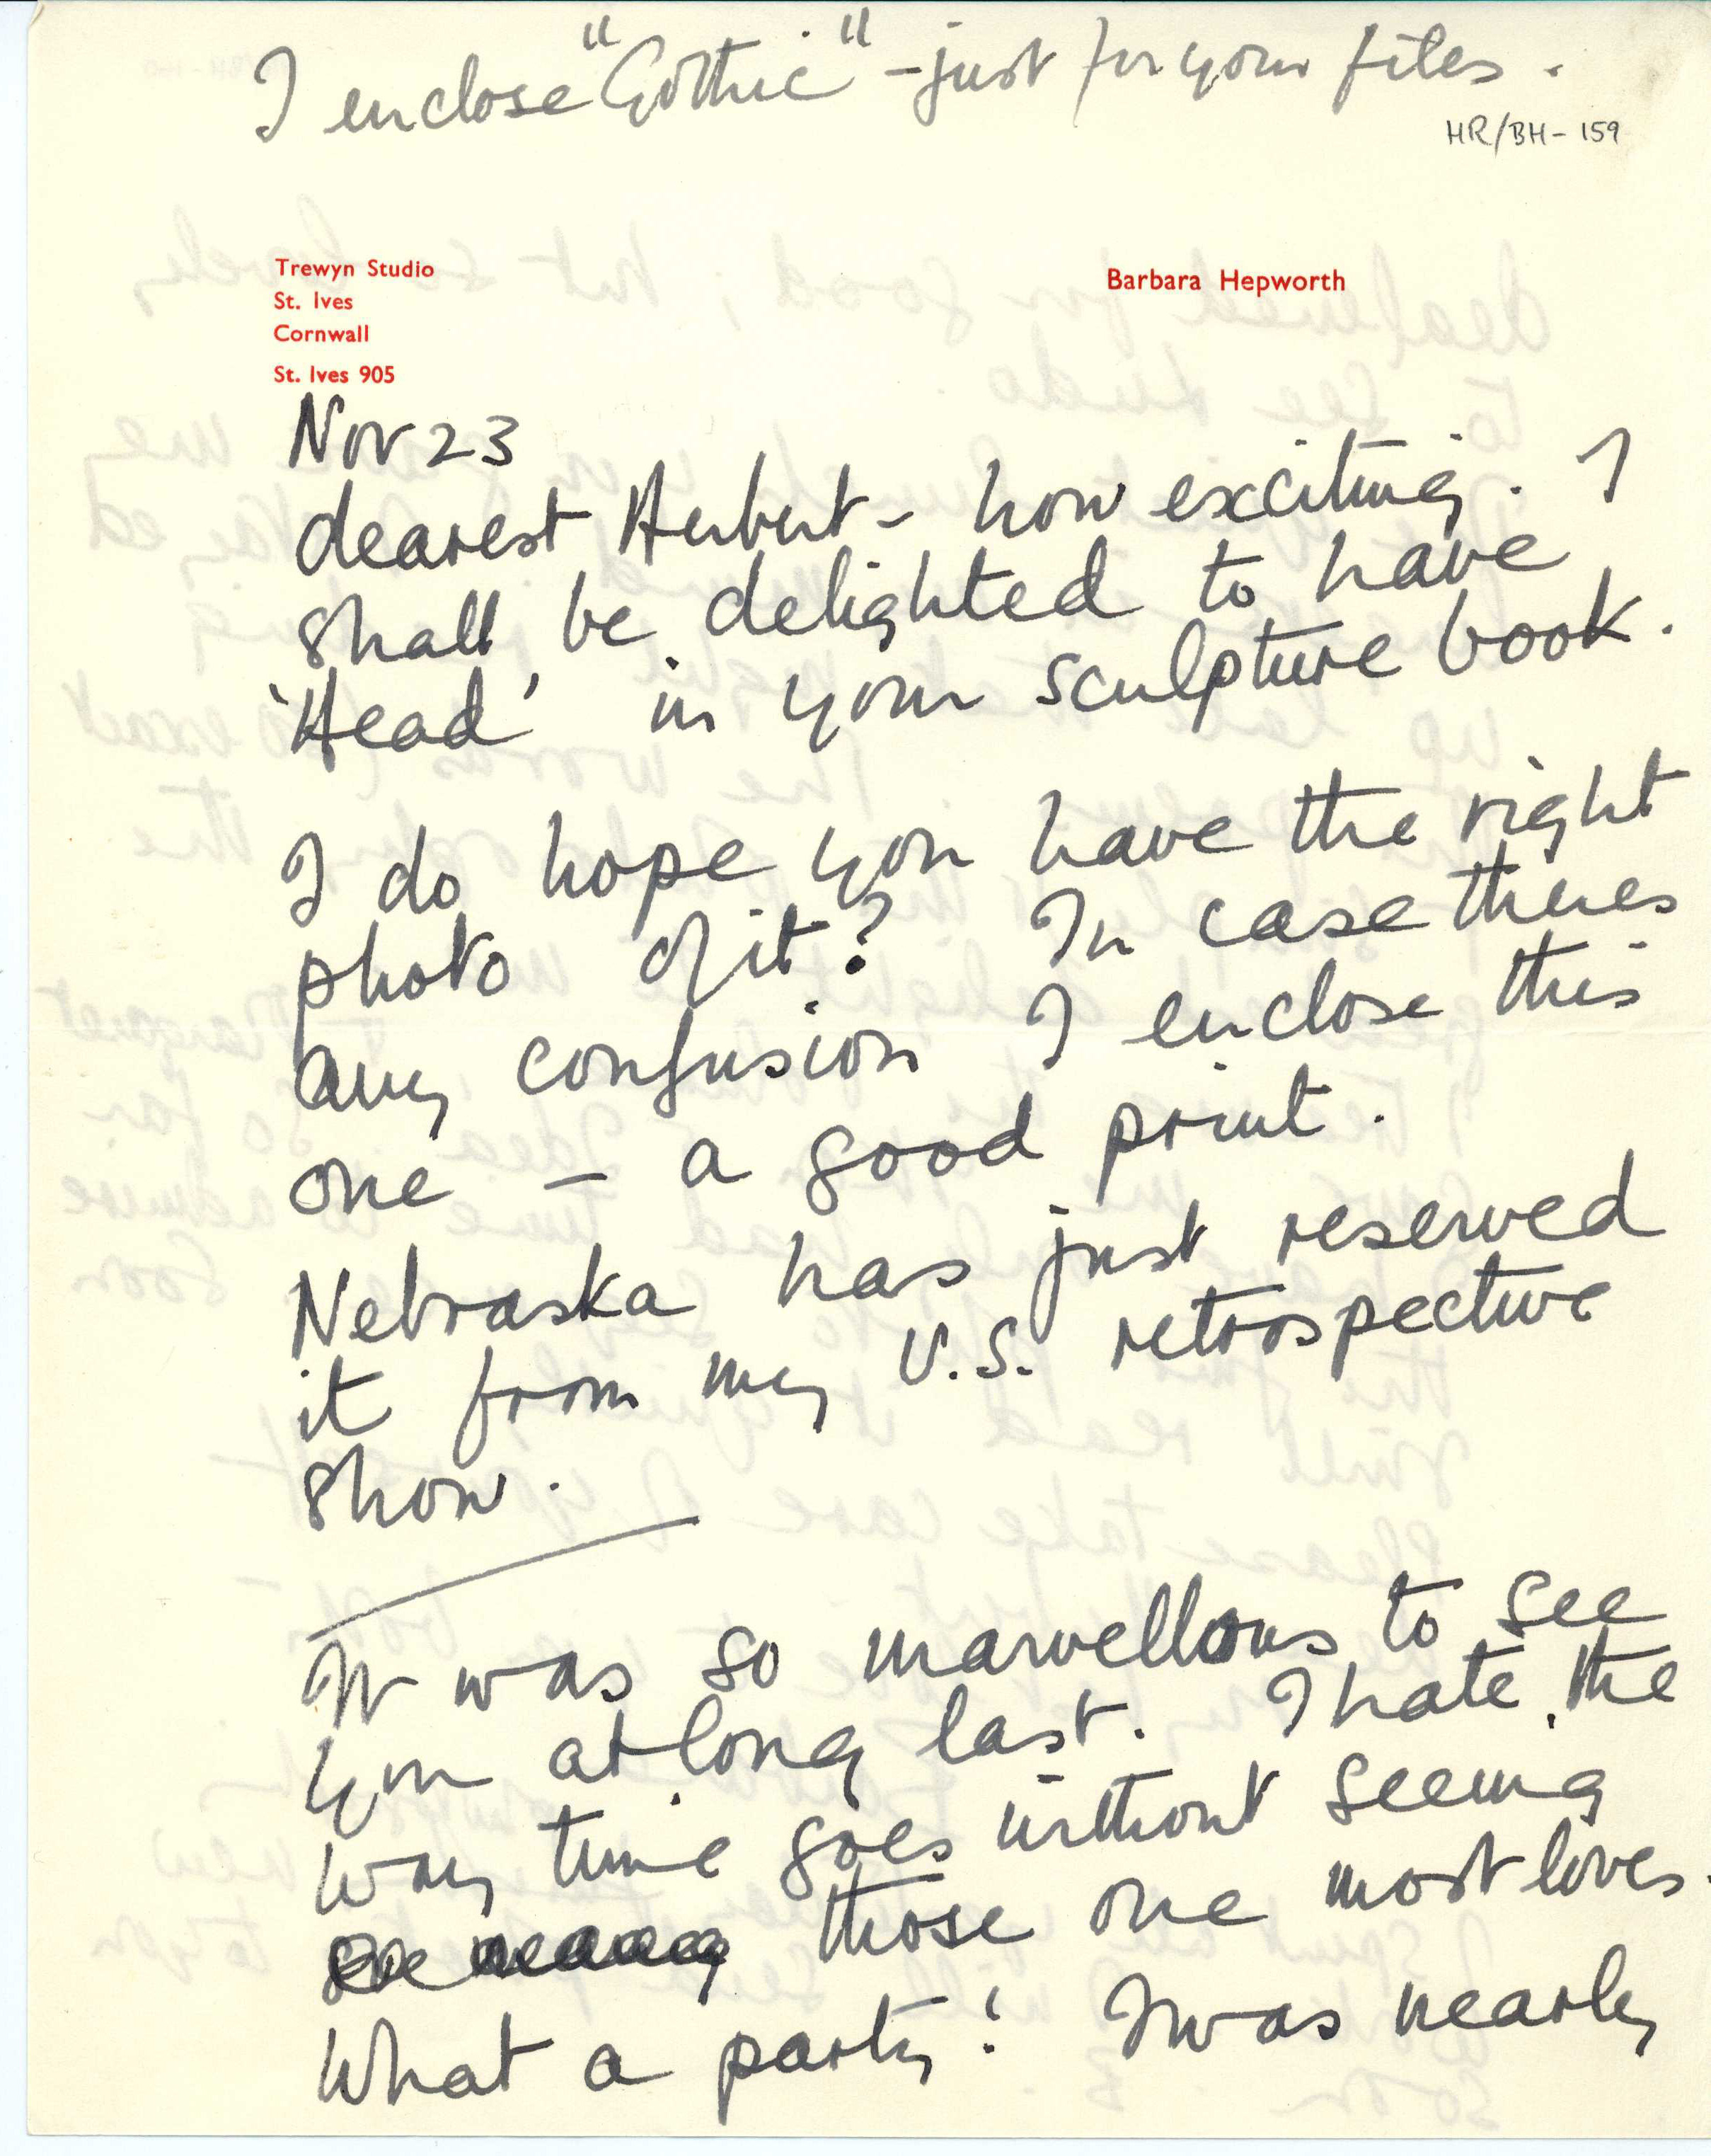 I enclose "Gothic" - just for your files.
HR/BH - 159
Trewyn Studio
St. Ives
Cornwall
St. Ives 905
Barbara Hepworth
Nov 23
dearest Herbert - how exciting. I
shall be delighted to have
'Head' in your sculpture book.
I do hope you have the right
photo of it? In case theres
any confusion I enclose this
one - a good print.
Nebraska has just reserved
it from my U.S. retrospective
show.
It was so marvellous to see
you at long last. I hate the
way time goes without seeing
those one most loves.
What a party! I was nearly